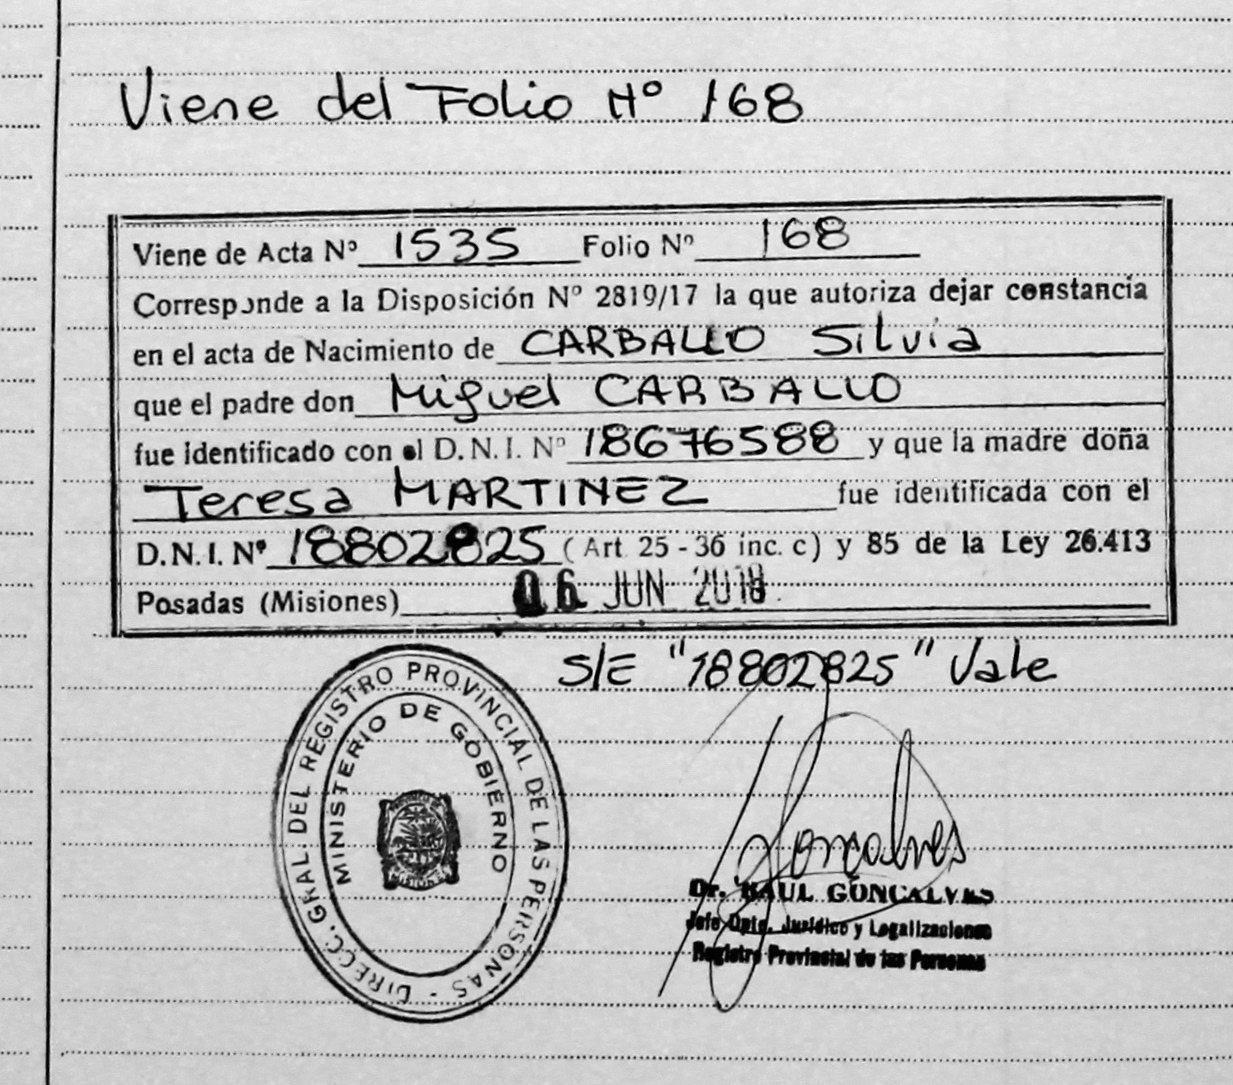 Viene del Folio Nº 168
Viene de Acta Nº 1535 Folio Nº 168
Corresponde a la Disposición Nº 2819/17 la que autoriza dejar constancia
en el acta de Nacimiento de CARBALLO Silvia
que el padre don Miguel CARBALLO
fue identificado con el D.N.I. Nº 18676588 y que la madre doña
Teresa MARTINEZ fue identificada con el
D.N.I. Nº 18802825 (Art 25 - 36 inc. c) y 85 de la Ley 26.413
Posadas (Misiones) 06 JUN 2018
S/E "18802825" Vale
DIRECC. GRAL. DEL REGISTRO PROVINCIAL DE LAS PERSONAS -
MINISTERIO DE GOBIERNO
MISIONES
Goncalves
Dr. RAUL GONCALVES
Jefe Dpto. Jurídico y Legalizaciones
Registro Provincial de las Personas